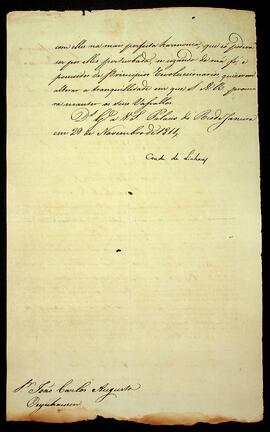 com elles na mais perfeita harmonia, que só poderá
ser por elles perturbada, se agindo de má fé, e
possuidos de Principios revolucionarios quizerem
alterar a tranquilidade em que S. A. R. procu
ra manter os seus Vassallos.
D.s G.e a V. S. Palacio do Rio de Janeiro
em 29 de Novembro de 1811,
Conde de Linhares
S.r João Carlos Augusto
Oeynhausen